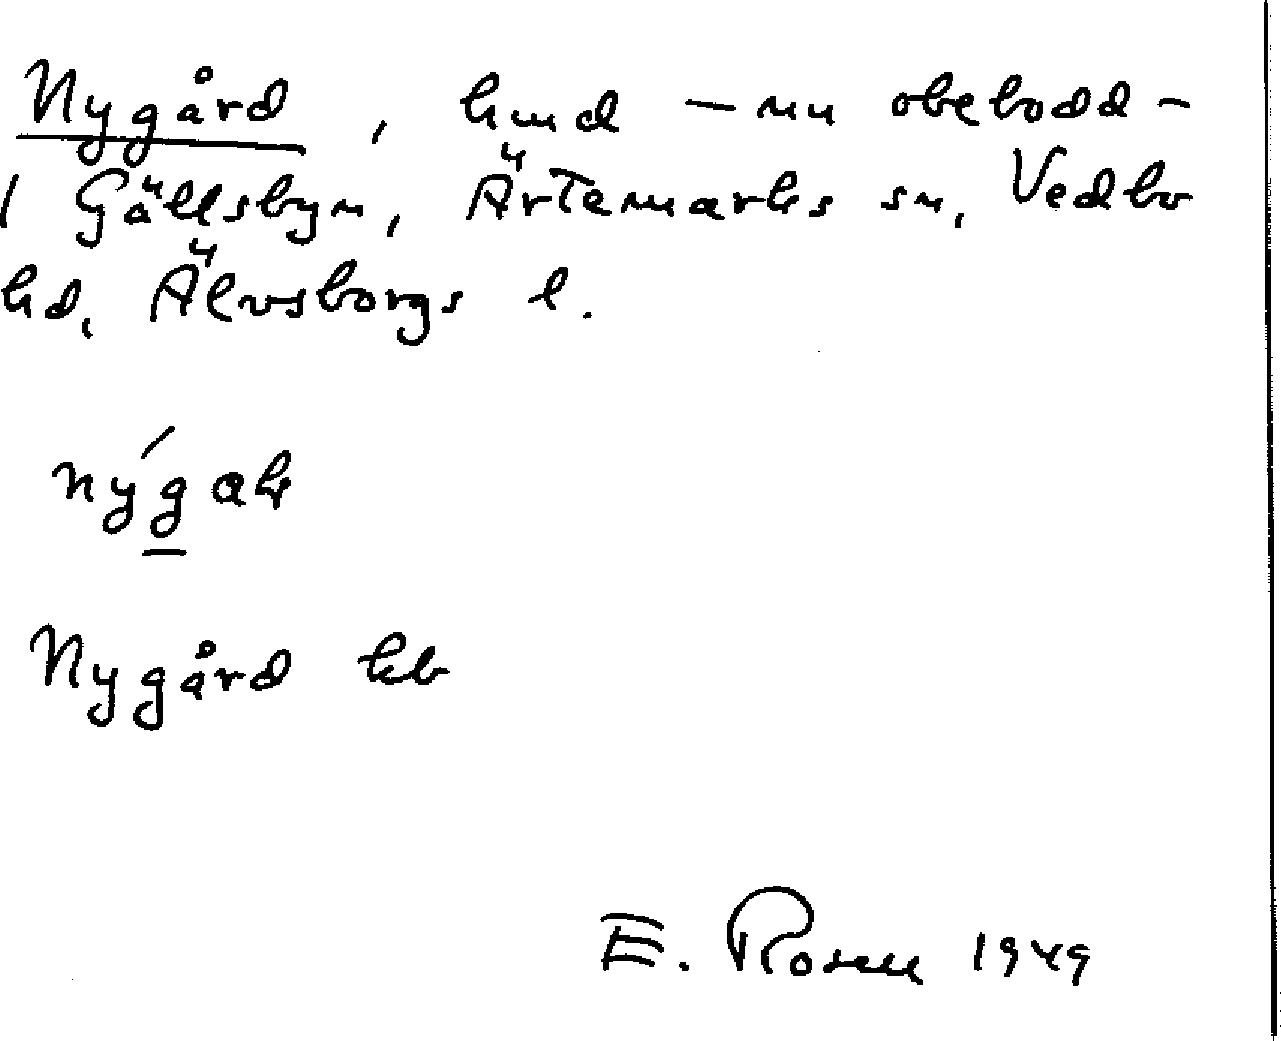 Nygård, hmd – nu obebodd –
i Gällsbyn, Ärtemarks sn, Vedbo
hd, Älvsborgs l.
Nygård kb
E. Rosen 1949